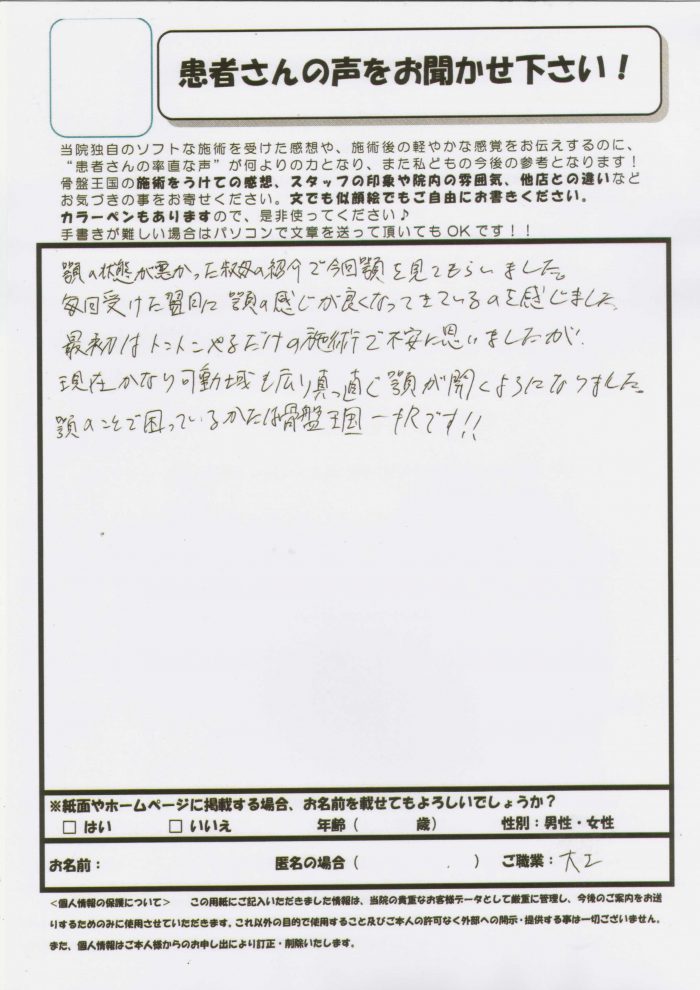 患者さんの声をお聞かせ下さい！
当院独自のソフトな施術を受けた感想や、施術後の軽やかな感覚をお伝えするのに、
“患者さんの率直な声”が何よりの力となり、また私どもの今後の参考となります！
骨盤王国の施術をうけての感想、スタッフの印象や院内の雰囲気、他店との違いなど
お気づきの事をお寄せください。文でも似顔絵でもご自由にお書きください。
カラーペンもありますので、是非使ってください♪
手書きが難しい場合はパソコンで文章を送って頂いてもＯＫです！！
顎の状態が悪かった叔母の紹介で今回顎を見てもらいました。
毎回受けた翌日に顎の感じが良くなってきているのを感じました
最初はトントンやるだけの施術で不安に思いましたが、
現在かなり可動域も広り真っ直ぐ顎が開くようになりました。
顎のことで困っているかたは骨盤王国一択です!!
※紙面やホームページに掲載する場合、お名前を載せてもよろしいでしょうか？
□ はい □ いいえ 年齢（ 歳） 性別：男性・女性
お名前： 匿名の場合（ ） ご職業：大工
＜個人情報の保護について＞ この用紙にご記入いただきました情報は、当院の貴重なお客様データとして厳重に管理し、今後のご案内をお送
りするためのみに使用させていただきます。これ以外の目的で使用すること及びご本人の許可なく外部への開示・提供する事は一切ございません。
また、個人情報はご本人様からのお申し出により訂正・削除いたします。